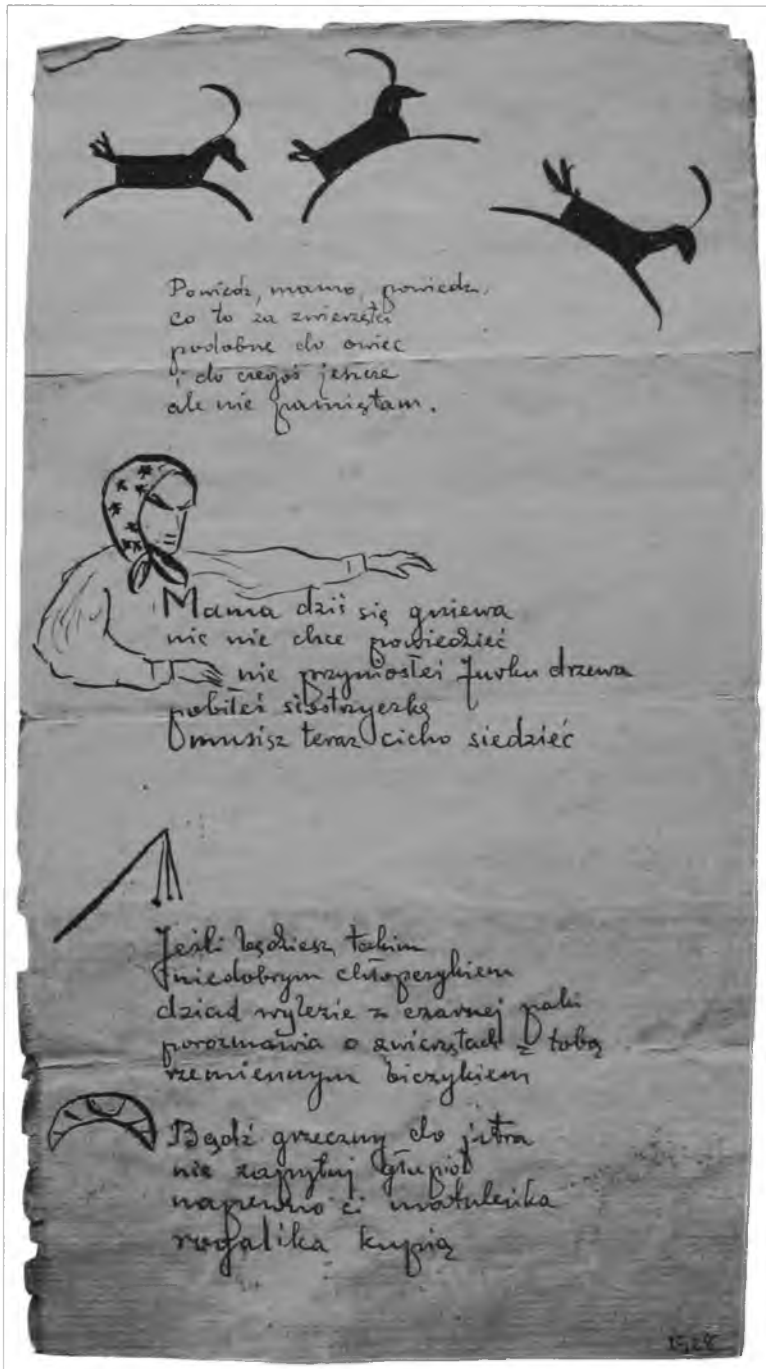 Powiedz, mamo, powiedz,
co to za zwierzęta
podobne do owiec
i do czegoś jeszcze
ale nie pamiętam.
Mama dziś się gniewa
nic nie chce powiedzieć
nie przyniosłeś Jurku drzewa
pobiłeś siostrzyczkę
musisz teraz cicho siedzieć
Jeśli będziesz takim
niedobrym chłopczykiem
dziad wylezie z czarnej paki
porozmawia o zwierzętach z tobą
rzemiennym biczykiem
Bądź grzeczny do jutra
nie zapytuj głupio
napewno ci matuleńka
rogalika kupią
1928